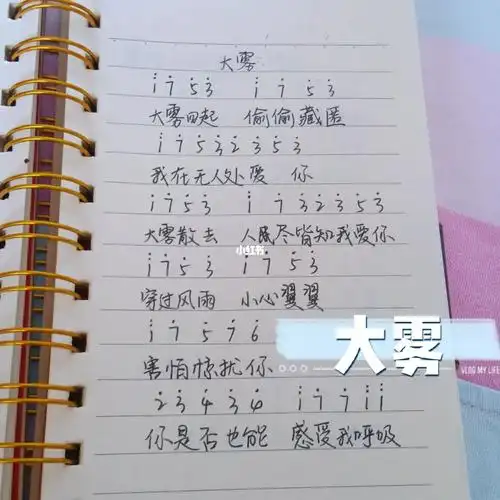 大雾
i̇ 7̇ 5̇ 3̇ i̇ 7 5̇ 3̇
大雾四起 偷偷藏匿
i̇ 7̇ 5̇ 3̇ 2̇ 3̇ 5̇ 3̇
我在无人处爱 你
i̇ 7̇ 5̇ 3̇ i̇ 7̇ 3̇ 2̇ 3̇ 5̇ 3̇
大雾散去 人尽皆知我爱你
小红书
i̇ 7̇ 5̇ 3̇ i̇ 7̇ 5̇ 3̇
穿过风雨 小心翼翼
i̇ 7̇ 5̇ 7̇ 6̇
害怕惊扰你
大雾
VLOG MY LIFE
2̇ 3̇ 4̇ 3̇ 4̇ i̇ 7̇ 7̇ i̇ i̇
你是否也能 感受我呼吸